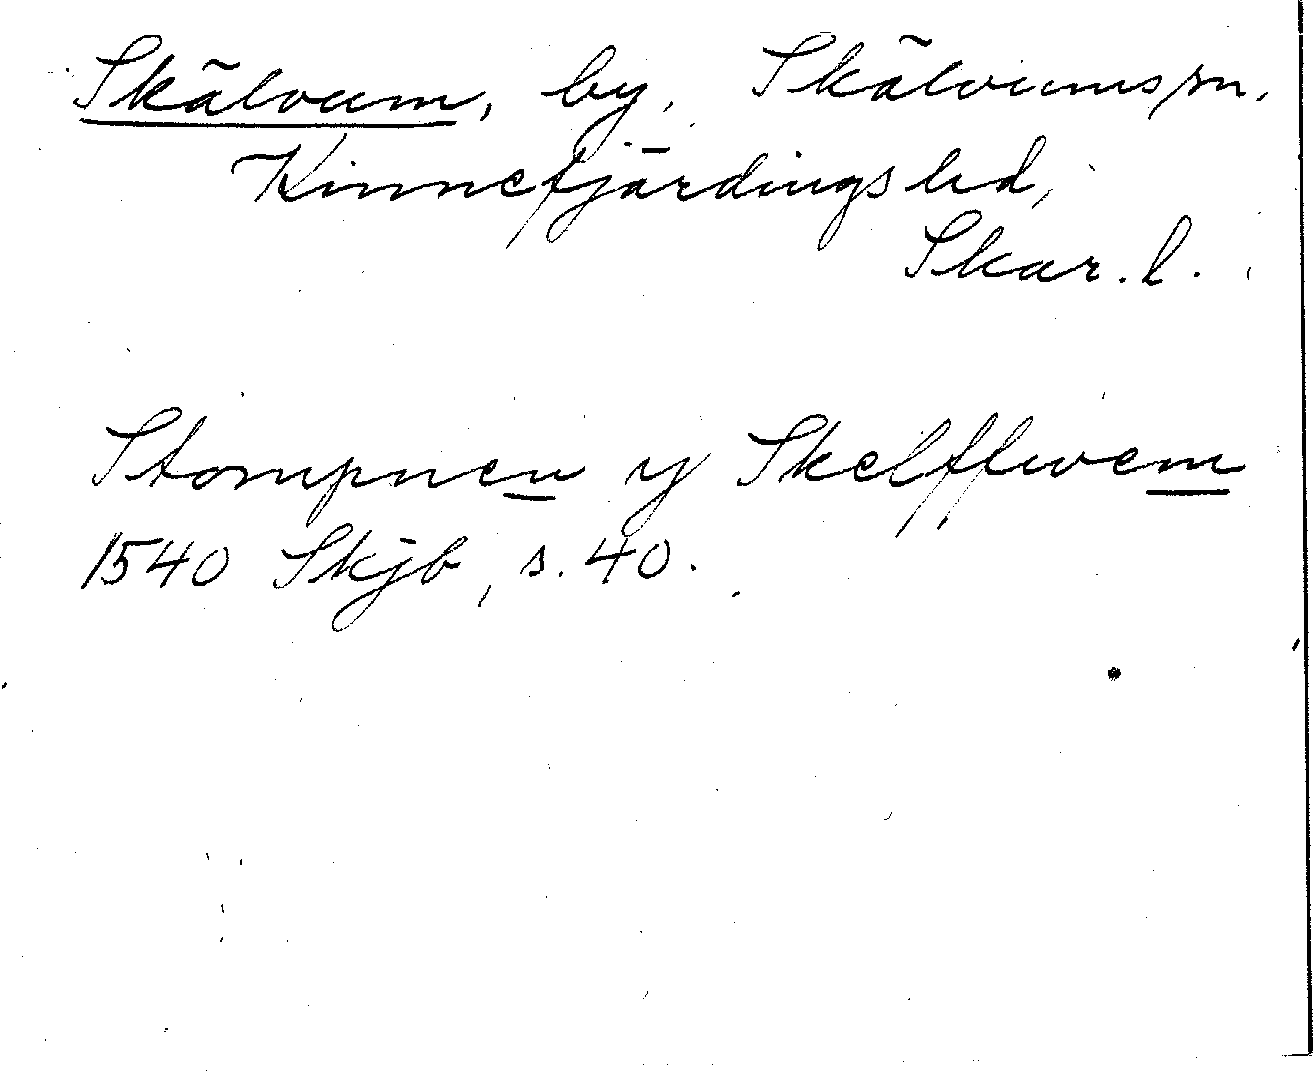 Skälvum, by, Skälvums sn,
Kinnefjärdings hd,
Skar. l.
Stompnen y Skelffwem
1540 Skjb, s. 40.